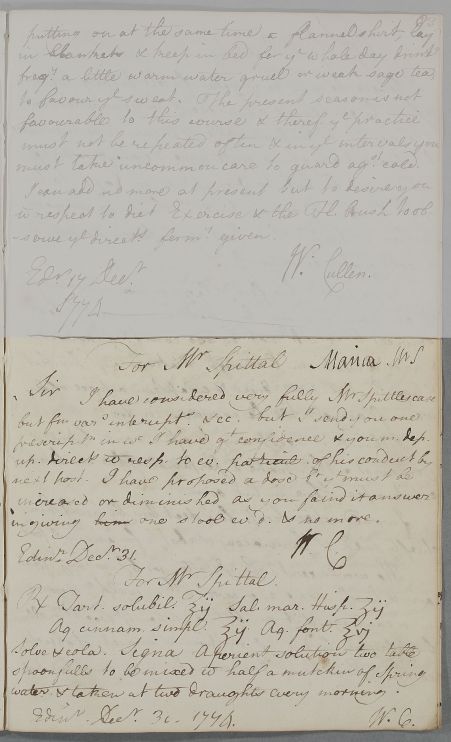 putting on at the same time a flannel shirt lay
in blankets & keep in bed for ye whole day drinkg
freqt a little warm water gruel or weak sage tea
to favour ye sweat. The present season is not
favourable to this course & theref ye practice
must not be repeated often & in ye intervals you
must take uncommon care to guard agt cold.
I can add no more at present but to desire you
wt respect to diet Exercise & the Fl. Brush to ob-
-serve ye directs formy given.
Edr 17 Decr W. Cullen.
1774
For Mr Spittal Mania MS
Sir I have considered very fully Mr Spittles case
but fm vars interuptns &cc. but I send you one
prescriptn in wc I have gt confidence & you m. dep.
up. directs w resp. to ev. particul. of his conduct by
next post. I have proposed a dose bt yt must be
increased or diminished as you faind it answer
in giving him one stool ev. d. & no more.
Edinr Decr 31 W C
For Mr Spittal.
℞ Tart. solubil. ʒij Sal. mar. Hisp. ʒij
Aq. cinnam. simpl. ℥ij Aq. font. ℥vj
solve & cola. Signa Aperient solution two table
spoonfulls to be mixed wt half a mutchkin of Spring
water & taken at two draughts every morning.
Edinr. Decr. 31. 1774. W. C.